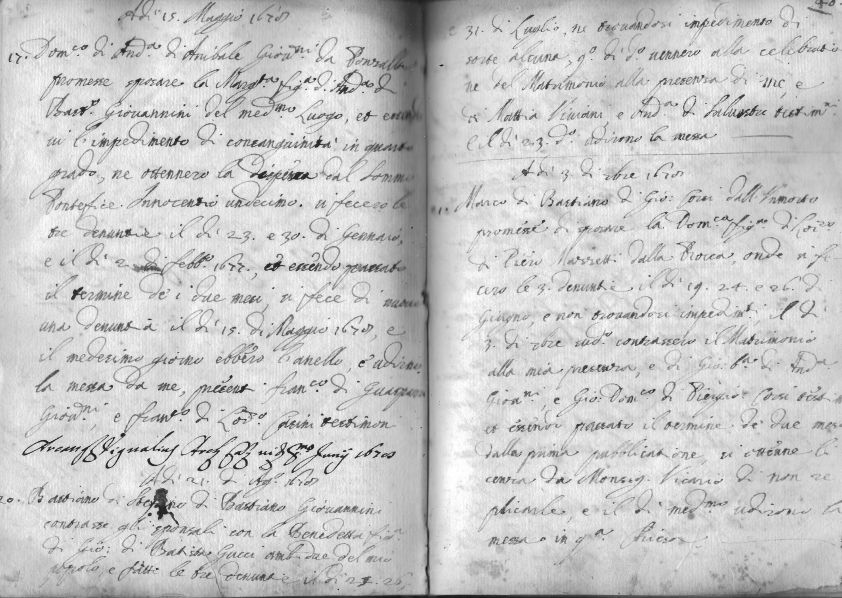 Adi 15. Maggio 1678
17. Dom.co di And.a di Anibale Giov.ni da
promesse sposare la Marg.ta fig.a d. And.a di
Bast.o Giovannini del med.mo Luogo, et essendo
vi l'impedimento di consanguinità in quarto
grado, ne ottennero la dispensa dal Sommo
Pontefice Innocentio undecimo. si fecero le
tre denuntie il di 23. e 30. di Gennaro,
e il di 2 di febb.o 1677, et essendo passato
il termine de i due mesi, si fece di nuovo
una denuntia il di 15. di Maggio 1678, e
il medesimo giorno ebbero l'anello, e udirono
la messa da me, presenti fran.co di Guaspa
Giov.ni, e fran.co di Lod.o testimon
Junij 1678
Adi 21. di Ag.o 1678
20. Bastiano di di Bastiano Giovannini
contrasse gli sponsali con la Benedetta fig.a
di Gio: di Batista Gucci amb. due del mio
popolo, e fatte le tre denuntie il di 24. 26.
40.
e 31. di Luglio, ne trovandosi impedimento di
sorte alcuna, q.o di d.o vennero alla celebratio
ne del Matrimonio alla presenza di me e
di Mattia Viviani, e And.a di Salvestro test.m
e il di 23. d.o udirono la messa
Adi 3. di 7bre 1678
Marco di Bastiano di Gio: Corsi dall'
promise di sposare la Dom.ca fig.a di
di Piero dalla Rocca, onde si fe
cero le 3. denuntie il di 19. 24. e 26. di
Giugno, e non trovandosi impedim.to il di
3. di 7bre sud.o contrassero il Matrimonio
alla mia presenza, e di Gio: b.a di And.a
Giov.ni, e Gio: Dom.co di Corsi testim
et essendo passato il termine de' due mesi
dalla prima pubblicatione, si ottenne li
cenza da Monsig. Vicario di non re
plicarle, e il di med.mo udirono la
messa in q.a Chiesa